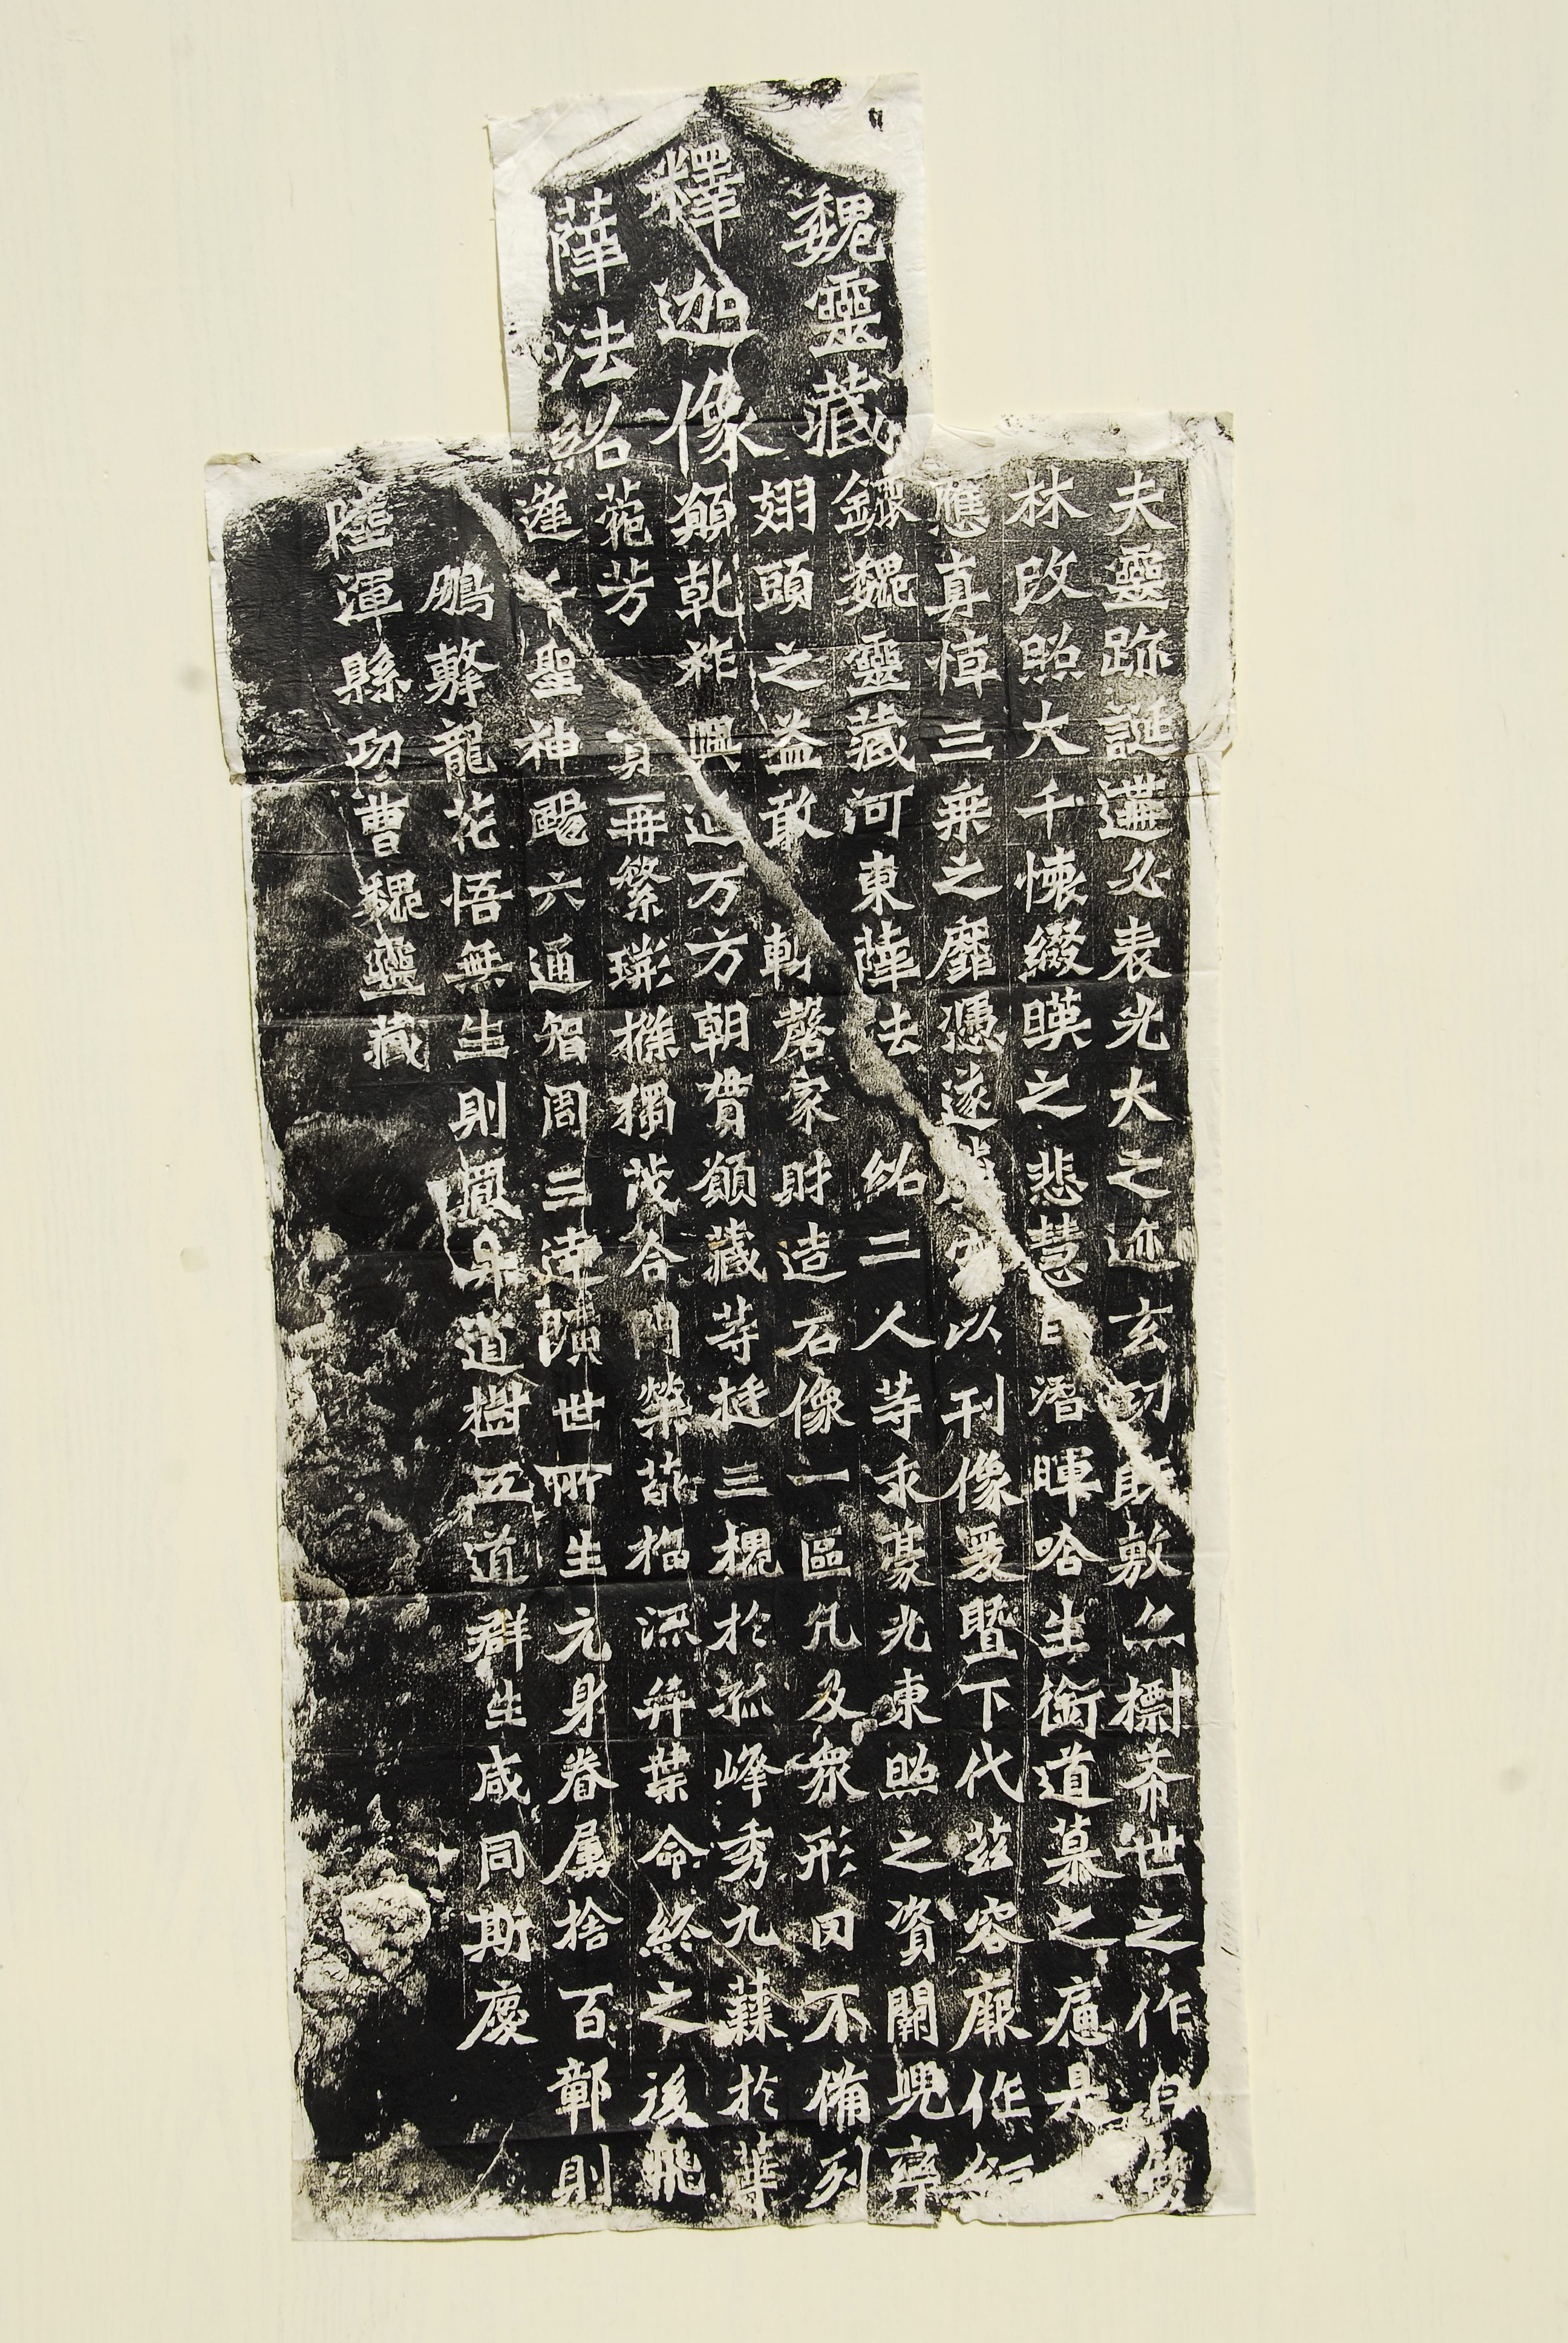 魏靈藏
釋迦像
薛法紹
夫靈跡誕遘必表光大之迹玄功既敷亦標希世之作自雙
林改照大千懷綴暎之悲慧日潛暉唅生銜道慕之痛是
應真悼三乘之靡憑遂騰空以刊像爰暨下代茲容厥作鉅
鹿魏靈藏河東薛法紹二人等求豪光東照之資闕兜率
翅頭之益敢輒磬家財造石像一區凡及眾形罔不備列
願乾祚興延万方朝貫願藏等挺三槐於孤峰秀九蕀於華
菀芳實再繁荊條獨茂合門榮葩福流奕葉命終之後飛
逢千聖神颺六通智周三達曠世所生元身眷属捨百鄣則
鵬擊龍花悟無生則鳳昇道樹五道群生咸同斯慶
陸渾縣功曹魏靈藏